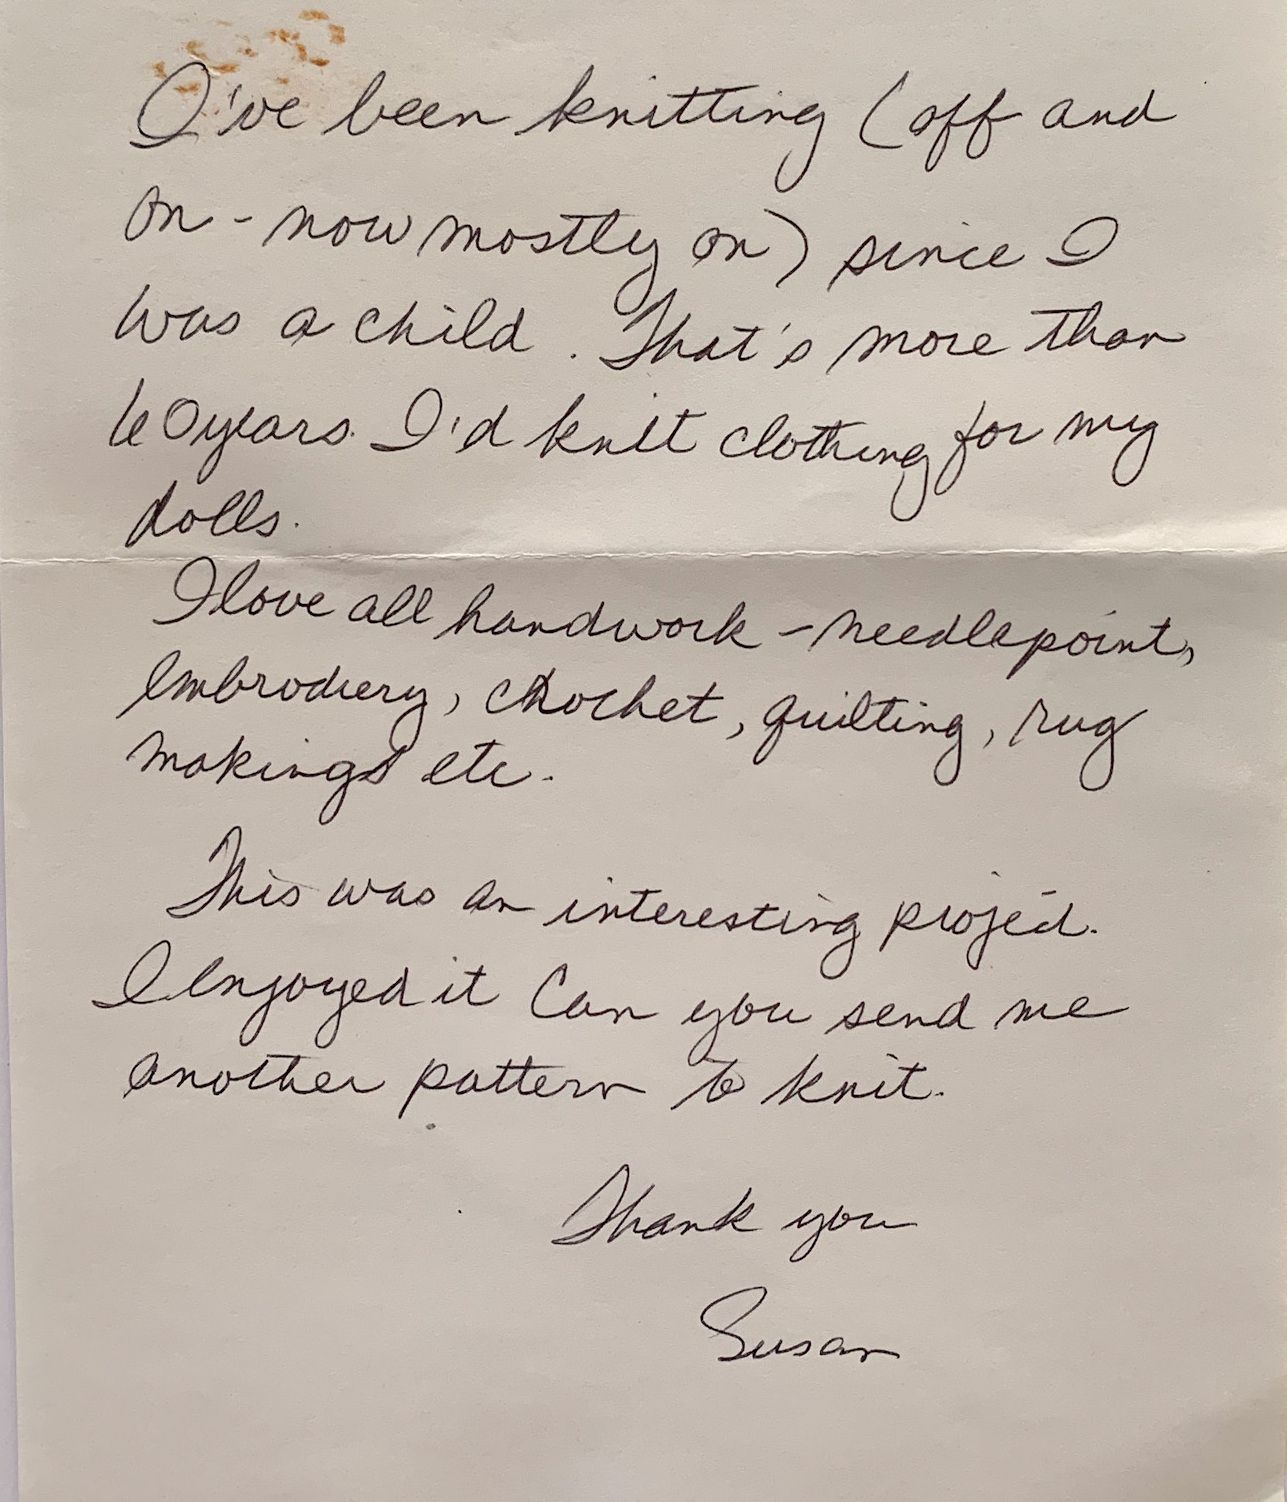 I've been knitting (off and
on - now mostly on) since I
was a child. That's more than
60 years. I'd knit clothing for my
dolls.
I love all handwork - needlepoint,
embrodiery, crochet, quilting, rug
makings etc.
This was an interesting project.
I enjoyed it Can you send me
another pattern to knit.
Thank you
Susan